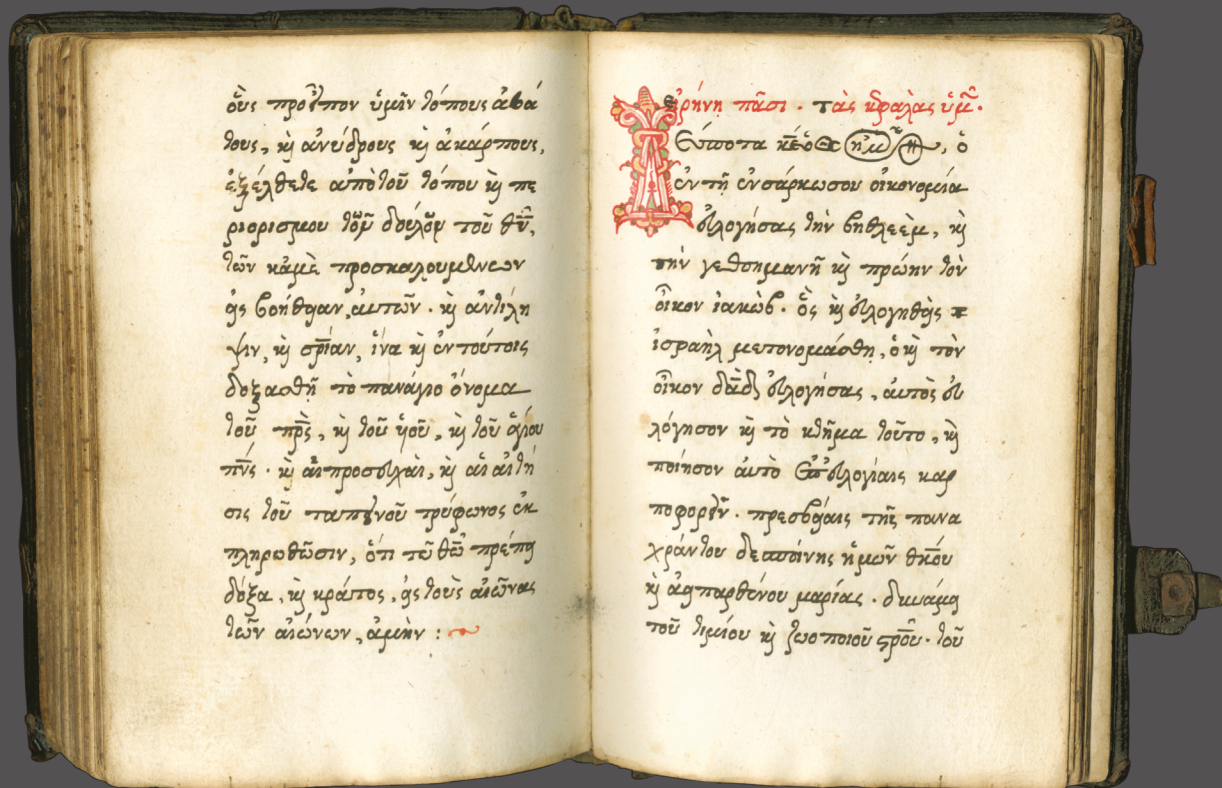 οὓς προεῖπον ὑμῖν τόπους ἀβά
τους, κ̀ ἀνύδρους κ̀ ἀκάρπους,
ἐξέλθετε ἀπὸ τοῦ τόπου κ̀ πε
ριορισμου τῶν δούλων τοῦ θῦ,
τῶν κἀμὲ προσκαλουμένων
εἰς βοήθειαν αὐτῶν · κ̀ ἀντίλη
ψιν, κ̀ σρίαν, ἵνα κ̀ ἐν τούτοις
δοξασθῇ τὸ πανάγιο ὄνομα
τοῦ πρς, κ̀ τοῦ υἱοῦ, κ̀ τοῦ ἁγίου
πνς · κ̀ αἱ προσευχαὶ, κ̀ αἱ αἰτή
σις τοῦ ταπεινοῦ τρύφωνος ἐκ
πληρωθῶσιν, ὅτι τῶ θῶ πρέπει
δόξα, κ̀ κράτος, εἰς τοὺς αἰῶνας
τῶν αἰώνων, ἀμήν :
εἰρήνη πᾶσι · τὰς κεφαλὰς ὑμ ·
Δέσποτα κε ὁ θς ἡμῶν, ὁ
ἐν τῇ ἐνσάρκωσου οἰκονομία
εὐλογήσας τὴν βηθλεὲμ, κ̀
τὴν γεθσημανῆ κ̀ πρώην τὸν
οἶκον ἰακώβ · ὃς κ̀ εὐλογηθεὶς
ἰσραὴλ μετονομάσθη, ὁ κ̀ τὸν
οἶκον δαδ εὐλογήσας, αὐτὸς εὐ
λόγησον κ̀ τὸ κτῆμα τοῦτο, κ̀
ποίησον αὐτὸ ἐπ' εὐλογίαις καρ
ποφορεῖν · πρεσβείαις τῆς πανα
χράντου δεσποίνης ἡμῶν θκου
κ̀ ἀειπαρθένου μαρίας · δυνάμει
τοῦ τιμίου κ̀ ζωοποιοῦ σρου · τοῦ